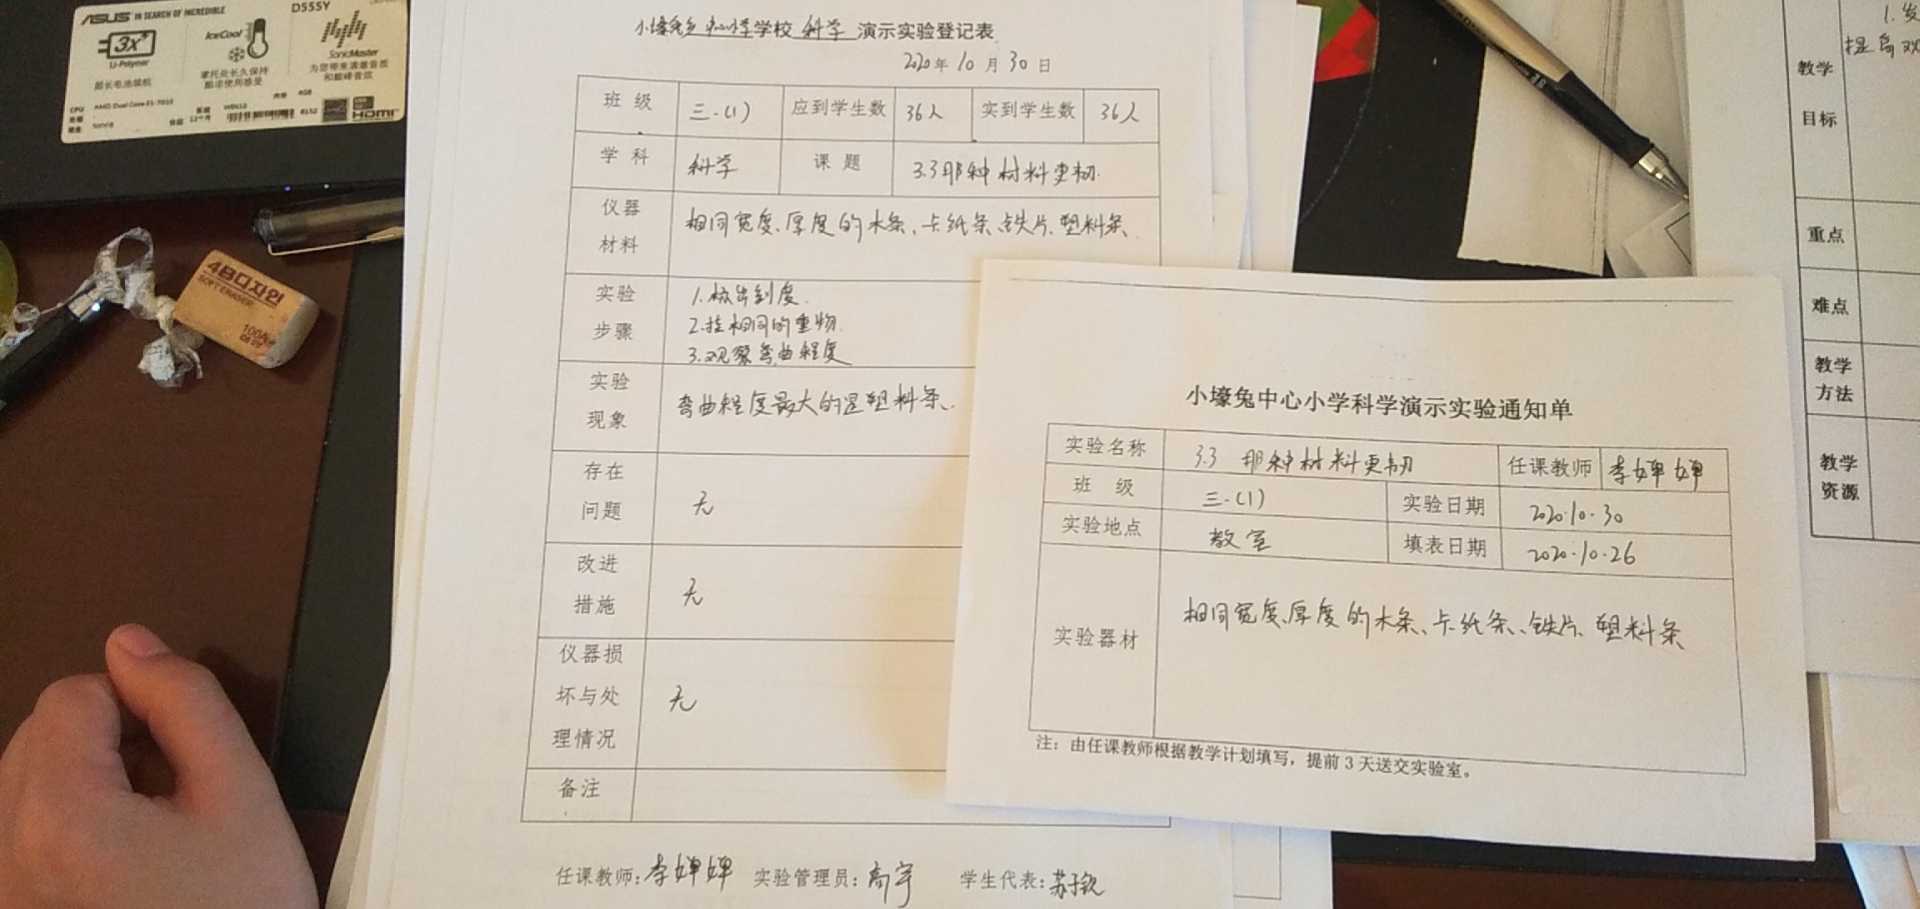 ASUS IN SEARCH OF INCREDIBLE
D555Y
3X
Li-Polymer
IceCool
SonicMaster
超长电池续航
掌托处长久保持
酷凉使用感受
为您带来清澈音质
和巅峰音效
WIN10
4GB
12个月
HDMI
4B디자인
SOFT ERASER
100A
学校 科学 演示实验登记表
2020年10月30日
班级 三.(1) 应到学生数 36人 实到学生数 36人
学科 科学 课题 3.3那种材料更韧.
仪器材料 相同宽度、厚度的木条、卡纸条、铁片、塑料条、
实验步骤 1.标出刻度.
2.挂相同的重物.
3.观察弯曲程度
实验现象 弯曲程度最大的是塑料条、
存在问题 无
改进措施 无
仪器损坏与处理情况 无
备注
任课教师:李婵婵 实验管理员:高宇 学生代表:
小壕兔中心小学科学演示实验通知单
实验名称 3.3 那种材料更韧 任课教师 李婵婵
班级 三.(1) 实验日期 2020.10.30
实验地点 教室 填表日期 2020.10.26
实验器材 相同宽度、厚度的木条、卡纸条、铁片、塑料条
注：由任课教师根据教学计划填写，提前3天送交实验室。
教学目标
重点
难点
教学方法
教学资源